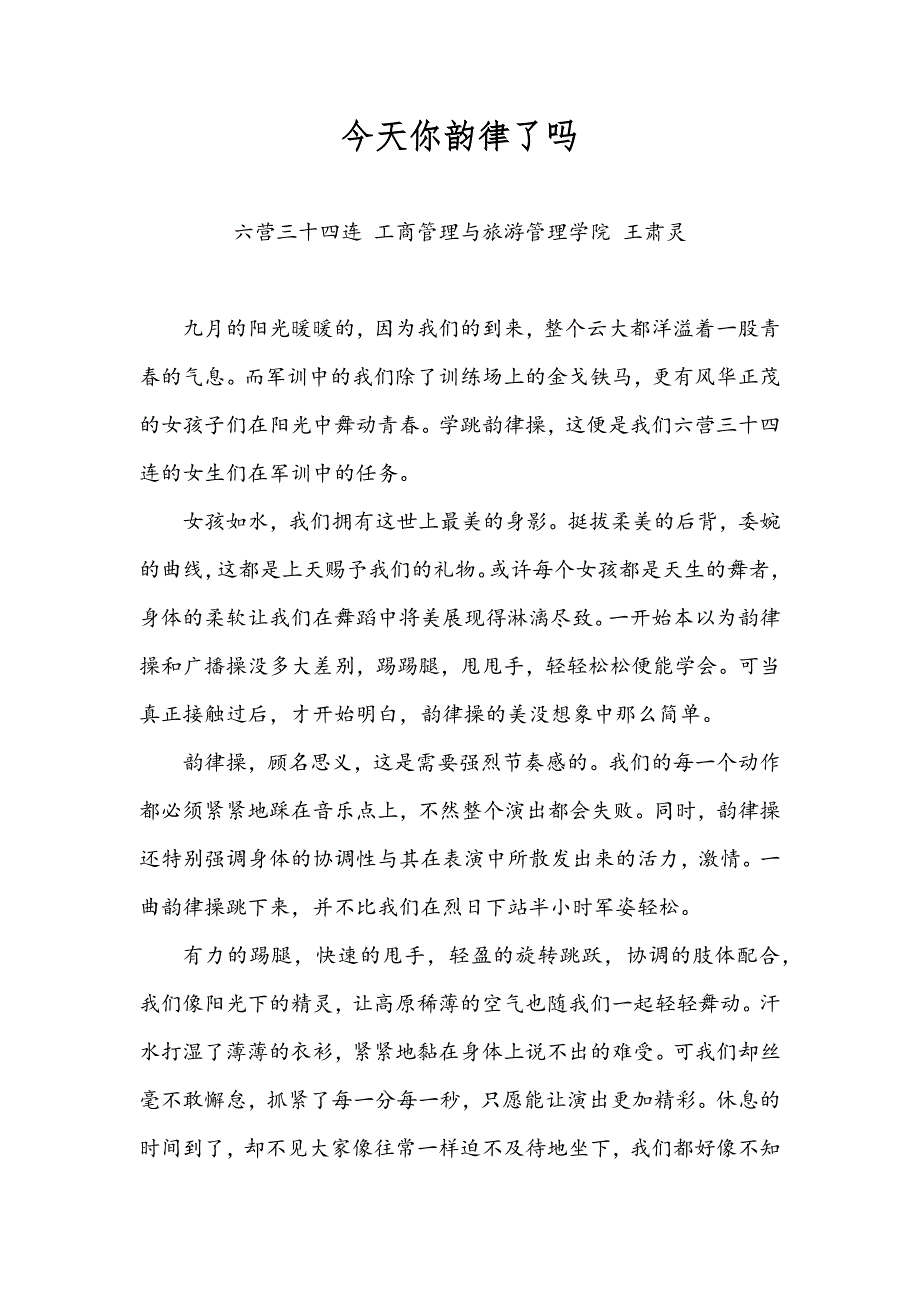 今天你韵律了吗
六营三十四连 工商管理与旅游管理学院 王肃灵
九月的阳光暖暖的，因为我们的到来，整个云大都洋溢着一股青
春的气息。而军训中的我们除了训练场上的金戈铁马，更有风华正茂
的女孩子们在阳光中舞动青春。学跳韵律操，这便是我们六营三十四
连的女生们在军训中的任务。
女孩如水，我们拥有这世上最美的身影。挺拔柔美的后背，委婉
的曲线，这都是上天赐予我们的礼物。或许每个女孩都是天生的舞者，
身体的柔软让我们在舞蹈中将美展现得淋漓尽致。一开始本以为韵律
操和广播操没多大差别，踢踢腿，甩甩手，轻轻松松便能学会。可当
真正接触过后，才开始明白，韵律操的美没想象中那么简单。
韵律操，顾名思义，这是需要强烈节奏感的。我们的每一个动作
都必须紧紧地踩在音乐点上，不然整个演出都会失败。同时，韵律操
还特别强调身体的协调性与其在表演中所散发出来的活力，激情。一
曲韵律操跳下来，并不比我们在烈日下站半小时军姿轻松。
有力的踢腿，快速的甩手，轻盈的旋转跳跃，协调的肢体配合，
我们像阳光下的精灵，让高原稀薄的空气也随我们一起轻轻舞动。汗
水打湿了薄薄的衣衫，紧紧地黏在身体上说不出的难受。可我们却丝
毫不敢懈怠，抓紧了每一分每一秒，只愿能让演出更加精彩。休息的
时间到了，却不见大家像往常一样迫不及待地坐下，我们都好像不知